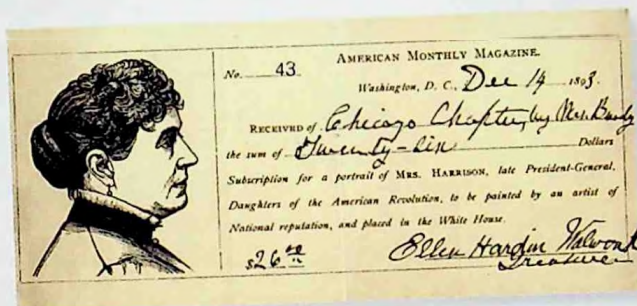 AMERICAN MONTHLY MAGAZINE.
No. 43
Washington, D. C., Dec 14 1893.
RECEIVED of Chicago Chapter, by Mrs.
the sum of Twenty-six Dollars
Subscription for a portrait of MRS. HARRISON, late President-General,
Daughters of the American Revolution, to be painted by an artist of
National reputation, and placed in the White House.
$26 00
Ellen Hardin Walworth
Treasurer